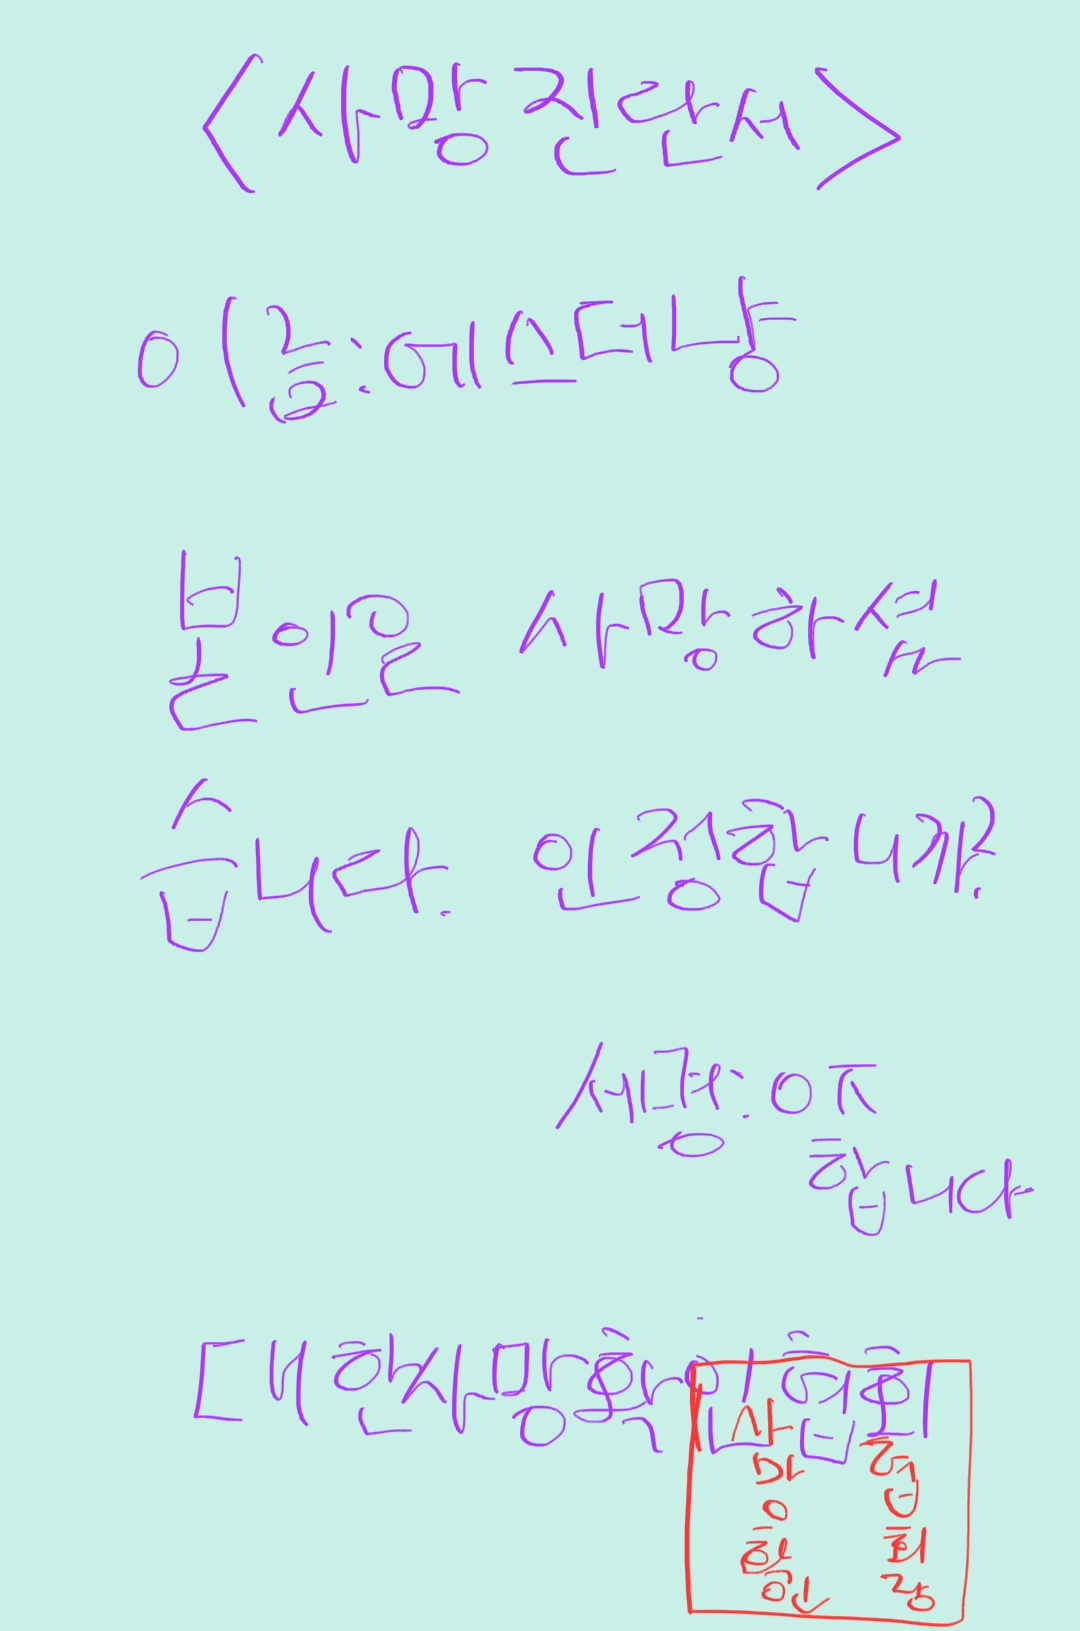 <사망진단서>
이름:에스더냥
본인은 사망하셨
습니다. 인정합니까?
세명:Oㅈ
합니다
대한사망확인협회
사망확인
협회장